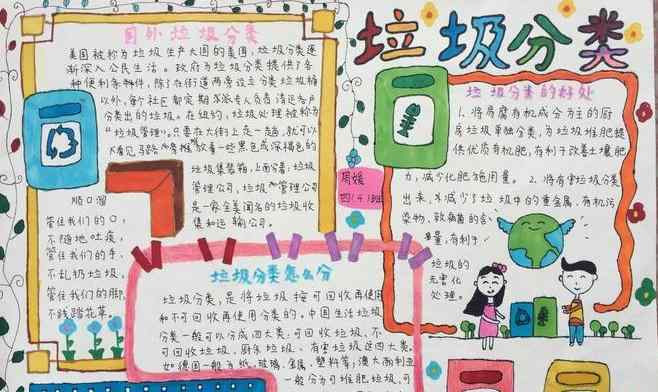 垃圾分类
国外垃圾分类
美国被称为垃圾生产大国的美国,垃圾分类逐
渐深入公民生活。政府为垃圾分类提供了各
种便利条件,除了在街道两旁设立分类垃圾桶
以外,每个社区都定期派专人负责清运各户
分类出的垃圾。在纽约,垃圾处理被称为
"垃圾管理"。只要在大街上走一走,就可以
看见马路旁停放着一些黑色或深褐色的
垃圾集装箱,上面分着:垃圾
管理公司,垃圾管理公司
是一家全美闻名的垃圾收
集和运输公司。
顺口溜
管住我们的口,
不随地吐痰,
管住我们的手,
不乱扔垃圾,
管住我们的脚,
不践踏花草。
周媛
四(4)班
垃圾分类的好处
1、将易腐有机成分为主的厨
房垃圾单独分类,为垃圾堆肥提
供优质有机肥,有利于改善土壤肥
力,减少化肥施用量。2、将有害垃圾分类
出来,减少了垃圾中的重金属,有机污
染物,致病菌的含
量,有利于
垃圾的
无害化
处理。
垃圾分类怎么分
垃圾分类,是将垃圾按可回收再使用
和不可回收再使用分类的。中国生活垃圾
分类一般可以分成四大类:可回收垃圾、不
可回收垃圾、厨余垃圾、有害垃圾这四大类。
如德国一般为纸、玻璃、金属、塑料等;澳大利亚
一般分为可堆肥垃圾,可